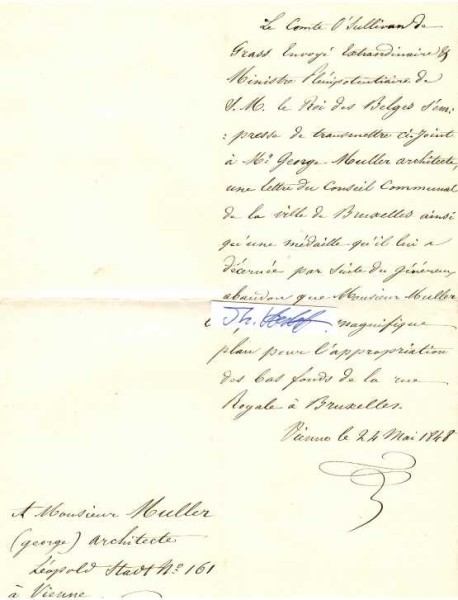 Le Comte O'Sullivan de
Grass Envoyé Extraordinaire &
Ministre Plénipotentiaire de
S. M. le Roi des Belges s'em:
:presse de transmettre ci-joint
à Mr. George Muller architecte,
une lettre du Conseil Communal
de la ville de Bruxelles ainsi
qu'une médaille qu'il lui a
décernée par suite du généreux
abandon que Monsieur Muller
Th. magnifique
plan pour l'appropriation
des bas fonds de la rue
Royale à Bruxelles.
Vienne le 24 Mai 1848
A Monsieur Muller
(george) architecte
Léopold Stadt No. 161
à Vienne